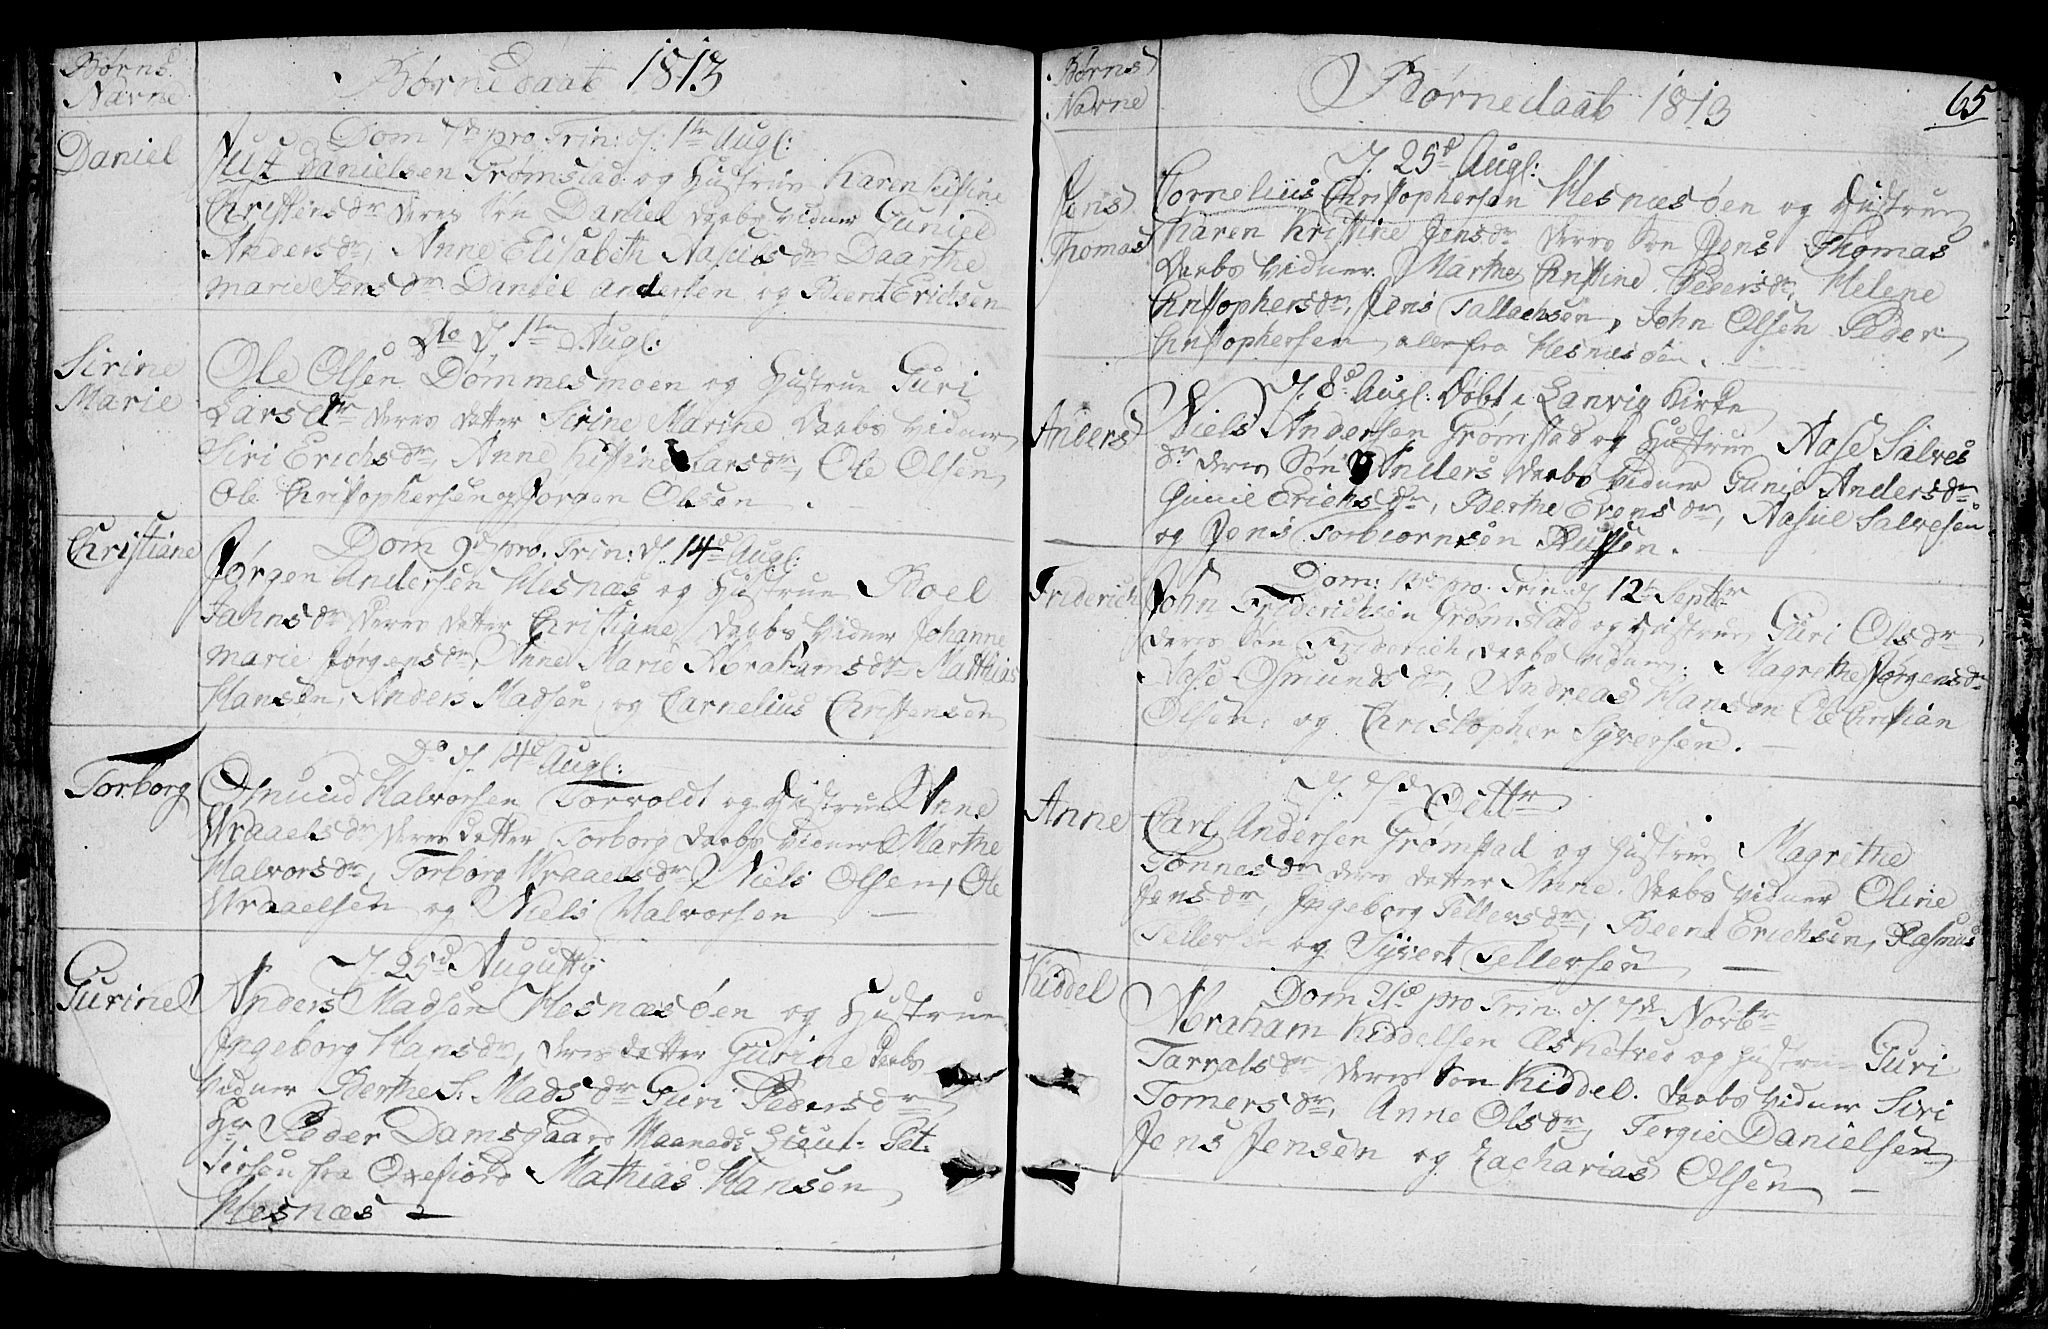 Børns
Navne
Børnedaab 1813
Daniel
Dom 7de pro Trin: d. 1te Augl:
Just Danielsen Grømstad og Hustrue Karen Kistine
Christensdr deres Søn Daniel Daabs Vidner Guniel
Andersdr, Anne Elisabeth Nasulsdr Daarthe
marie Jensdr Daniel Andersen og Bernt Erichsen
Sirine
Marie
Do d. 1te Augl:
Ole Olsen Dommesmoen og Hustrue Guri
Larsdr deres datter Sirine Marine Daabs Vidner
Siri Erichsdr, Anne Kistine Larsdr, Ole Olsen,
Ole Christophersen og Jørgen Olsen .
Christiane
Dom 9de pro. Trin: d. 14de Augl:
Jørgen Andersen Hesnæs og Hustrue Roel
Jahnsdr deres datter Christiane Daabs Vidner Johanne
marie Jørgensdr, Anne Marie Abrahamsdr Matthias
Hansen, Anders Madsen, og Carnelius Christensen
Torborg
Do d. 14de Augl:
Osmund Halvorsen Torvoldt og Hustrue Anne
Wraaelsdr deres datter Torborg Daabs Vidner Marthe
Halvorsdr, Torborg Wraaelsdr Niels Olsen, Ole
Wraaelsen og Niels Halvorsen —
Gurine
d. 25de Augusty
Anders Madsen Hesnæsøen og Hustrue
Ingeborg Hansdr, deres datter Gurine Daabs
Vidner Berthe S: Madsdr Guri Pedersdr
Hr Peder Damsgaard Maaneds Lieut: Pet:
tersøn fra Oxefiord Mathias Hansen
Hesnæs —
Børns
Navne
Børnedaab 1813
65
Jens
Thomas
d. 25de Augl:
Cornelius Christophersen Hesnæsøen og Hustrue
Karen Kristine Jensdr deres Søn Jens Thomas
Daabs Vidner. Marthe Christine Pedersdr, Helene
Christophersdr, Jens Tallachsen, John Olsen Peder
Christophersen, alle fra Hesnæsøen.
Anders
d. 8de Augl: Døbt i Landvig Kirke
Niels Andersen Grømstad og Hustrue Aase Salves
dr deres Søn Anders Daabs Vidner Gunie Andersdr
Gunie Erichsdr, Berthe Evensdr, Aasul Salvesen
og Jens Torbiørnsøn
Friderich
Dom: 13de pro. Trin d. 12te Septbr
John Friderichsen Grømstad og Hustrue Guri Olsdr
deres Søn Friderich Daabs Vidner. Magrethe Jørgensdr
Aase Osmundsdr, Andreas Hansen Ole Christian
Olsen, og Christopher Syversen. —
Anne
d. 7de Octbr
Carl Andersen Grømstad og Hustrue Magrethe
Tønnesdr deres datter Anne. Daabs Vidner Oline
Jensdr, Ingeborg Tellersdr, Beent Erichsen, Rasmus
Tellersen og Syvert Tellersen —
Kiddel
Dom 21de pro Trin. d. 7de Novbr
Abraham Kiddelsen Eskétved og Hustrue Guri
Tarralsdr deres Søn Kiddel. Daabs Vidner Siri
Tomersdr, Anne Olsdr, Tergie Danielsen
Jens Jensen og Zacharias Olsen —